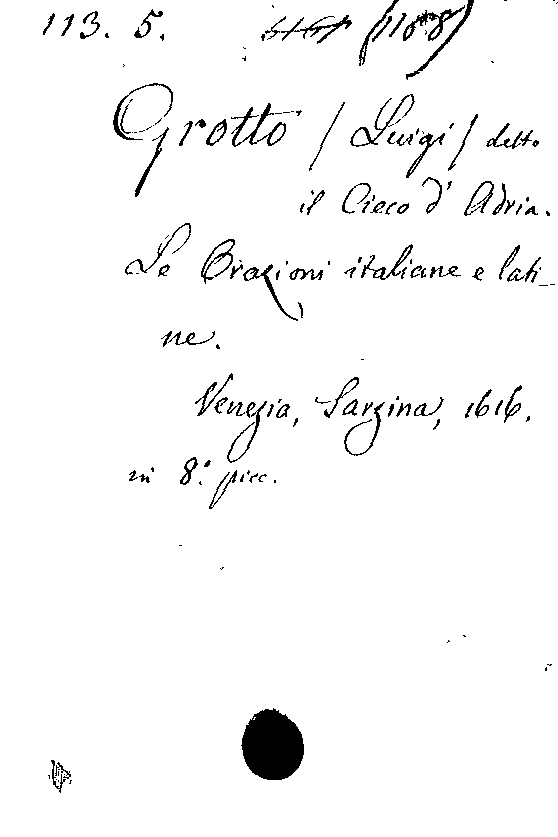 113. 5.
Grotto / Luigi / detto
il Cieco d' Adria.
Le Orazioni italiane e lati-
ne.
Venezia, Sarzina, 1616.
in 8.° picc.